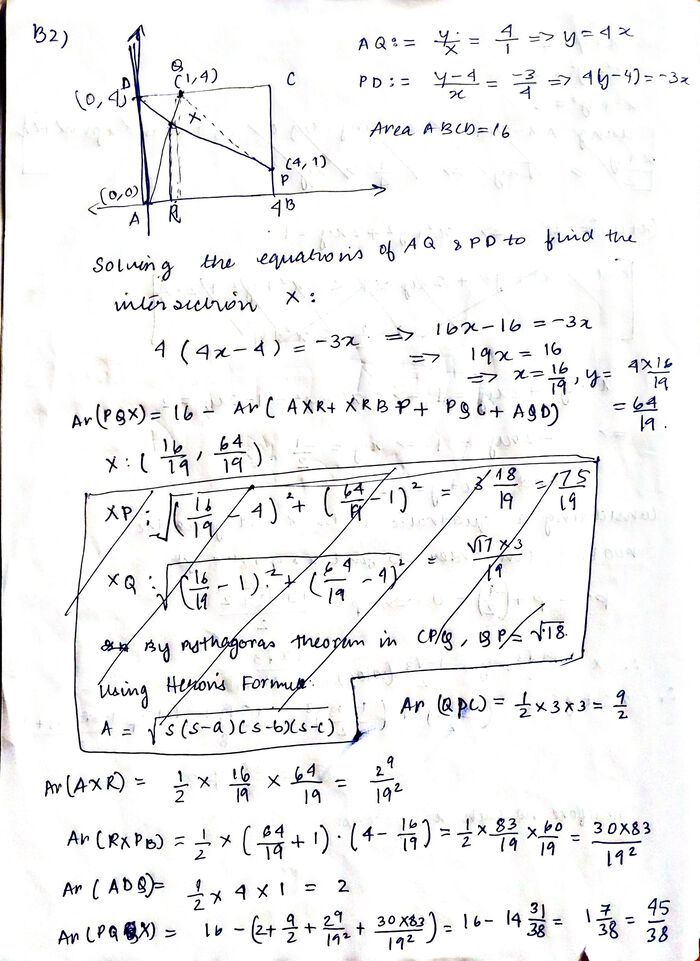 B2)
AQ := y/x = 4/1 => y = 4x
PD := (y-4)/x = -3/4 => 4(y-4) = -3x
Area ABCD = 16
D
(0,4)
Q
(1,4)
C
X
(4,1)
P
(0,0)
A
R
4 B
Solving the equations of AQ & PD to find the
intersection X :
4 (4x-4) = -3x => 16x-16 = -3x
=> 19x = 16
=> x = 16/19, y = 4×16/19
= 64/19.
Ar(PQX) = 16 - Ar( AXR + XRBP + PQC + AQD)
X : (16/19, 64/19)
XP : √((16/19 - 4)² + (64/19 - 1)²) = 3 18/19 = 75/19
XQ : √((16/19 - 1)² + (64/19 - 4)²) = √17 × 3/19
By Pythagoras theorem in CPQ, QP = √18.
Using Heron's Formula:
A = √s(s-a)(s-b)(s-c)
Ar (QPC) = 1/2 × 3 × 3 = 9/2
Ar(AXR) = 1/2 × 16/19 × 64/19 = 2⁹/19²
Ar(RXPB) = 1/2 × (64/19 + 1) · (4 - 16/19) = 1/2 × 83/19 × 60/19 = 30×83/19²
Ar (ADQ) = 1/2 × 4 × 1 = 2
Ar(PQX) = 16 - (2 + 9/2 + 2⁹/19² + 30×83/19²) = 16 - 14 31/38 = 1 7/38 = 45/38